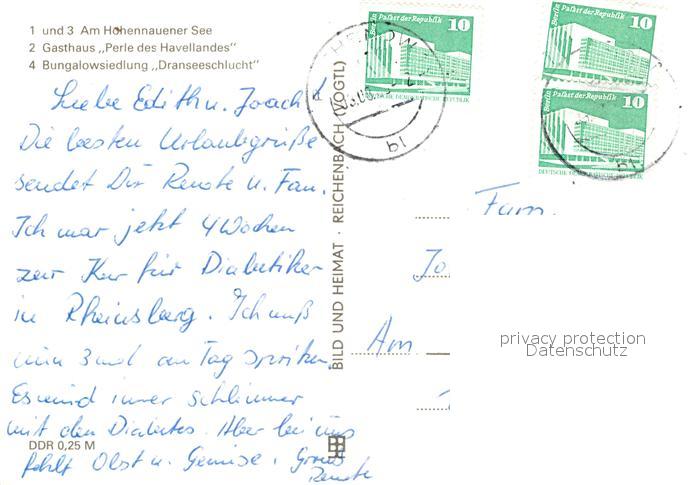 1 und 3 Am Hohennauener See
2 Gasthaus „Perle des Havellandes“
4 Bungalowsiedlung „Dranseeschlucht“
Liebe Edith u. Joach
Die besten Urlaubsgrüße
sendet Dir Renate u. Fam.
Ich war jetzt 4 Wochen
zur Kur für Diabetiker
in Rheinsberg. Ich muß
3 mal am Tag spritzen.
Es wird immer schlimmer
mit den Diabetes. Aber bei uns
fehlt Obst u. Gemüse. Gruß
Renate
DDR 0,25 M
BILD UND HEIMAT · REICHENBACH (VOGTL)
Berlin Palast der Republik
10
DEUTSCHE DEMOKRATISCHE REPUBLIK
Berlin Palast der Republik
10
Berlin Palast der Republik
10
DEUTSCHE DEMOKRATISCHE REPUBLIK
Fam.
Jo
Am
privacy protection
Datenschutz